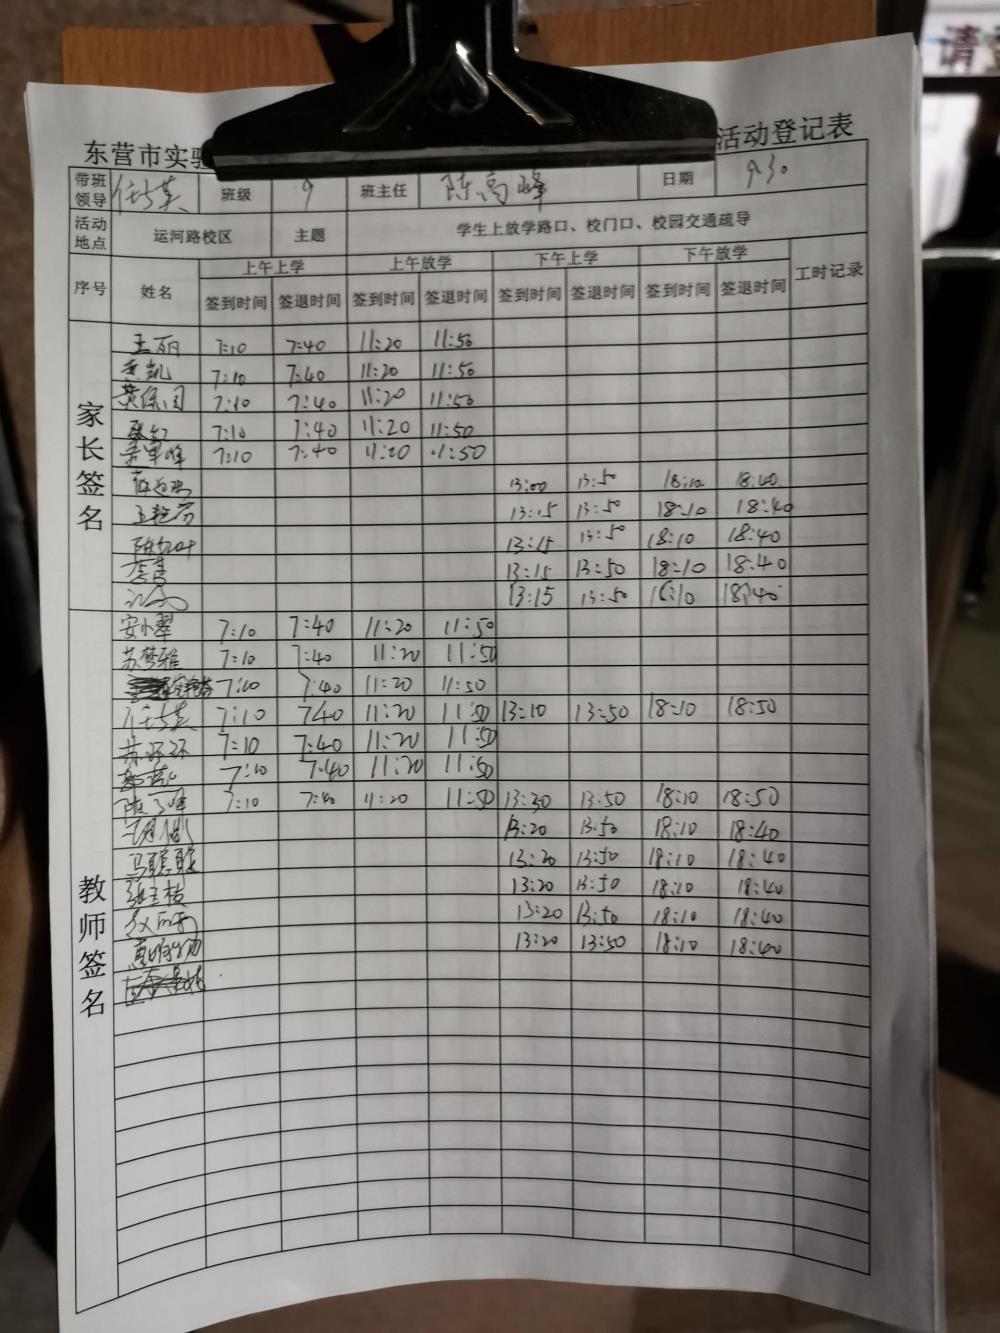 请
东营市实
活动登记表
带班领导 任 英 班级 9 班主任 陈高峰 日期 9.30
活动地点 运河路校区 主题 学生上放学路口、校门口、校园交通疏导
序号 姓名 上午上学 上午放学 下午上学 下午放学 工时记录
签到时间 签退时间 签到时间 签退时间 签到时间 签退时间 签到时间 签退时间
家长签名
王丽 7:10 7:40 11:20 11:50
凯 7:10 7:40 11:20 11:50
黄 7:10 7:40 11:20 11:50
7:10 7:40 11:20 11:50
峰 7:10 7:40 11:20 11:50
13:00 13:50 18:10 18:40
王 13:15 13:50 18:10 18:40
陈红叶 13:15 13:50 18:10 18:40
13:15 13:50 18:10 18:40
13:15 13:50 18:10 18:40
教师签名
安小翠 7:10 7:40 11:20 11:50
苏梦雅 7:10 7:40 11:20 11:50
7:10 7:40 11:20 11:50
任 英 7:10 740 11:20 11:50 13:10 13:50 18:10 18:50
苏环环 7:10 7:40 11:20 11:50
7:10 7:40 11:20 11:50
陈高峰 7:10 7:40 11:20 11:50 13:30 13:50 18:10 18:50
13:20 13:50 18:10 18:40
马聪聪 13:20 13:50 18:10 18:40
张玉枝 13:20 13:50 18:10 18:40
13:20 13:50 18:10 18:40
13:20 13:50 18:10 18:40